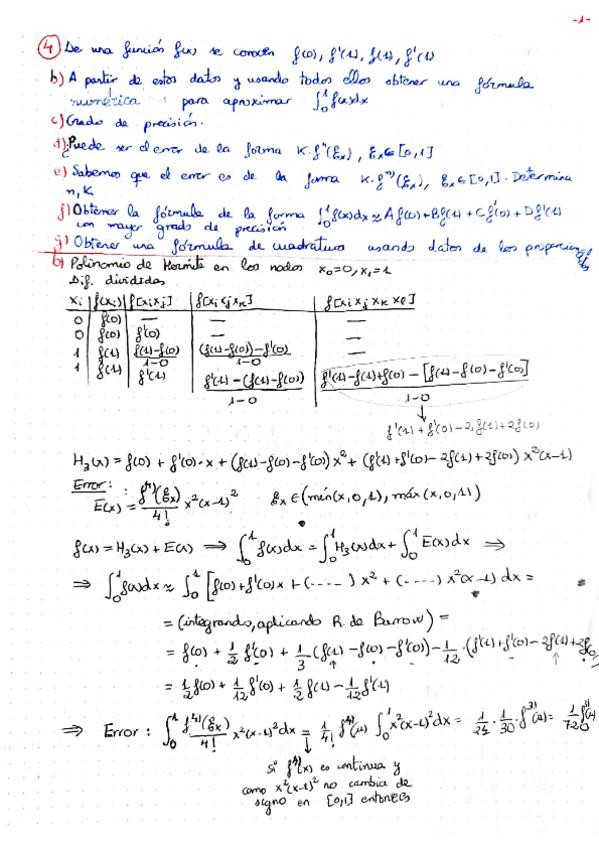 -1-
④ De una función f(x) se conocen f(0), f'(1), f(1), f'(1)
b) A partir de estos datos y usando todos ellos obtener una fórmula
numérica para aproximar ∫₀¹ f(x)dx
c) Grado de precisión.
d) ¿Puede ser el error de la forma K·f''(ξx), ξx∈[0,1]
e) Sabemos que el error es de la forma K·fⁿ⁾(ξx), ξx∈[0,1]. Determina
n, K
f) Obtener la fórmula de la forma ∫₀¹ f(x)dx ≈ A f(0)+B f(1)+C f'(0)+D f'(1)
con mayor grado de precisión
g) Obtener una fórmula de cuadratura usando datos de los
b) Polinomio de Hermite en los nodos x₀=0, x₁=1
Dif. divididas
xi | f(xi) | f[xi xj] | f[xi xj xk] | f[xi xj xk xl]
0 | f(0) | — | — | —
0 | f(0) | f'(0) | — | —
1 | f(1) | (f(1)-f(0))/(1-0) | ((f(1)-f(0))-f'(0))/(1-0) | —
1 | f(1) | f'(1) | (f'(1)-(f(1)-f(0)))/(1-0) | (f'(1)-f(1)+f(0) - [f(1)-f(0)-f'(0)])/(1-0)
↓
f'(1)+f'(0)-2f(1)+2f(0)
H₃(x) = f(0) + f'(0)·x + (f(1)-f(0)-f'(0))x² + (f'(1)+f'(0)-2f(1)+2f(0)) x²(x-1)
Error: :
E(x) = f⁴⁾(ξx)/4! x²(x-1)² ξx ∈ (mín(x,0,1), máx(x,0,1))
f(x) = H₃(x) + E(x) ⟹ ∫₀¹ f(x)dx = ∫₀¹ H₃(x)dx + ∫₀¹ E(x)dx ⟹
⟹ ∫₀¹ f(x)dx ≈ ∫₀¹ [f(0)+f'(0)x+(----)x² + (----) x²(x-1) dx =
= (integrando, aplicando R. de Barrow) =
= f(0) + 1/2 f'(0) + 1/3 (f(1)-f(0)-f'(0)) - 1/12 · (f'(1)+f'(0)-2f(1)+2f(0)
= 1/2 f(0) + 1/12 f'(0) + 1/2 f(1) - 1/12 f'(1)
⟹ Error : ∫₀¹ f⁴⁾(ξx)/4! x²(x-1)² dx = 1/4! f⁴⁾(μ) ∫₀¹ x²(x-1)² dx = 1/24 · 1/30 · f³⁾(μ) = 1/720 f⁴⁾(μ)
↓
si f⁴⁾(x) es continua y
como x²(x-1)² no cambia de
signo en [0,1] entonces